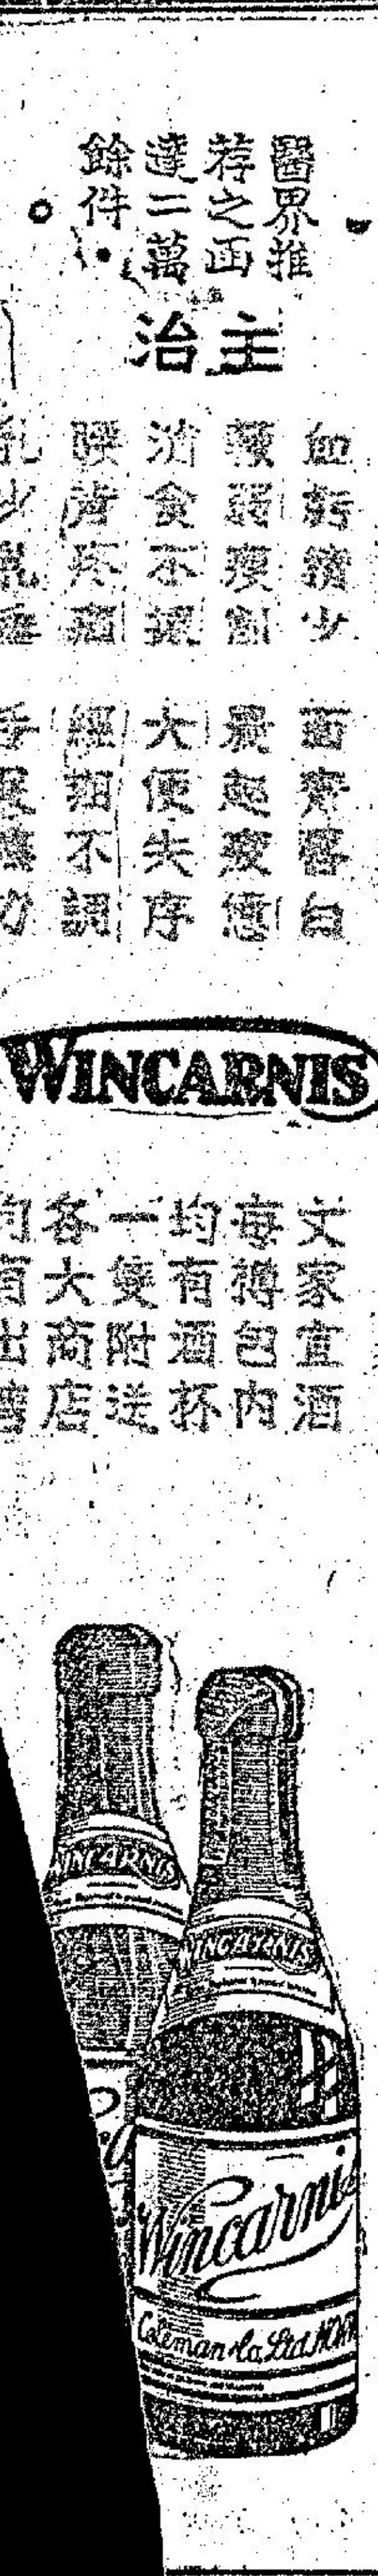 醫界推
荐之函
達二萬
餘件
主治
血虧精少
軟弱瘦削
消食不
腰背疼痛
面青唇白
晨起疲憊
大便失序
經期不調
WINCARNIS
文家宜酒
每樽包內
均有酒杯
一隻附送
各大商店
均有出售
WINCARNIS
WINCARNIS
Wincarnis
Coleman & Co. Ltd.